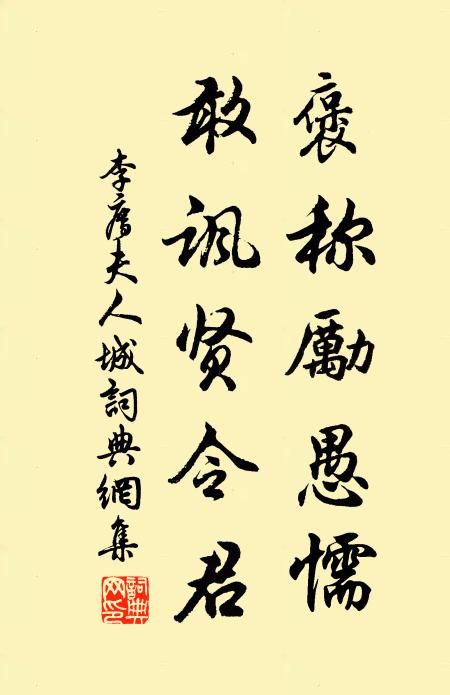 褒称勵愚懦
敢諷贤令君
李廌夫人城詞典網集
詞典
网印